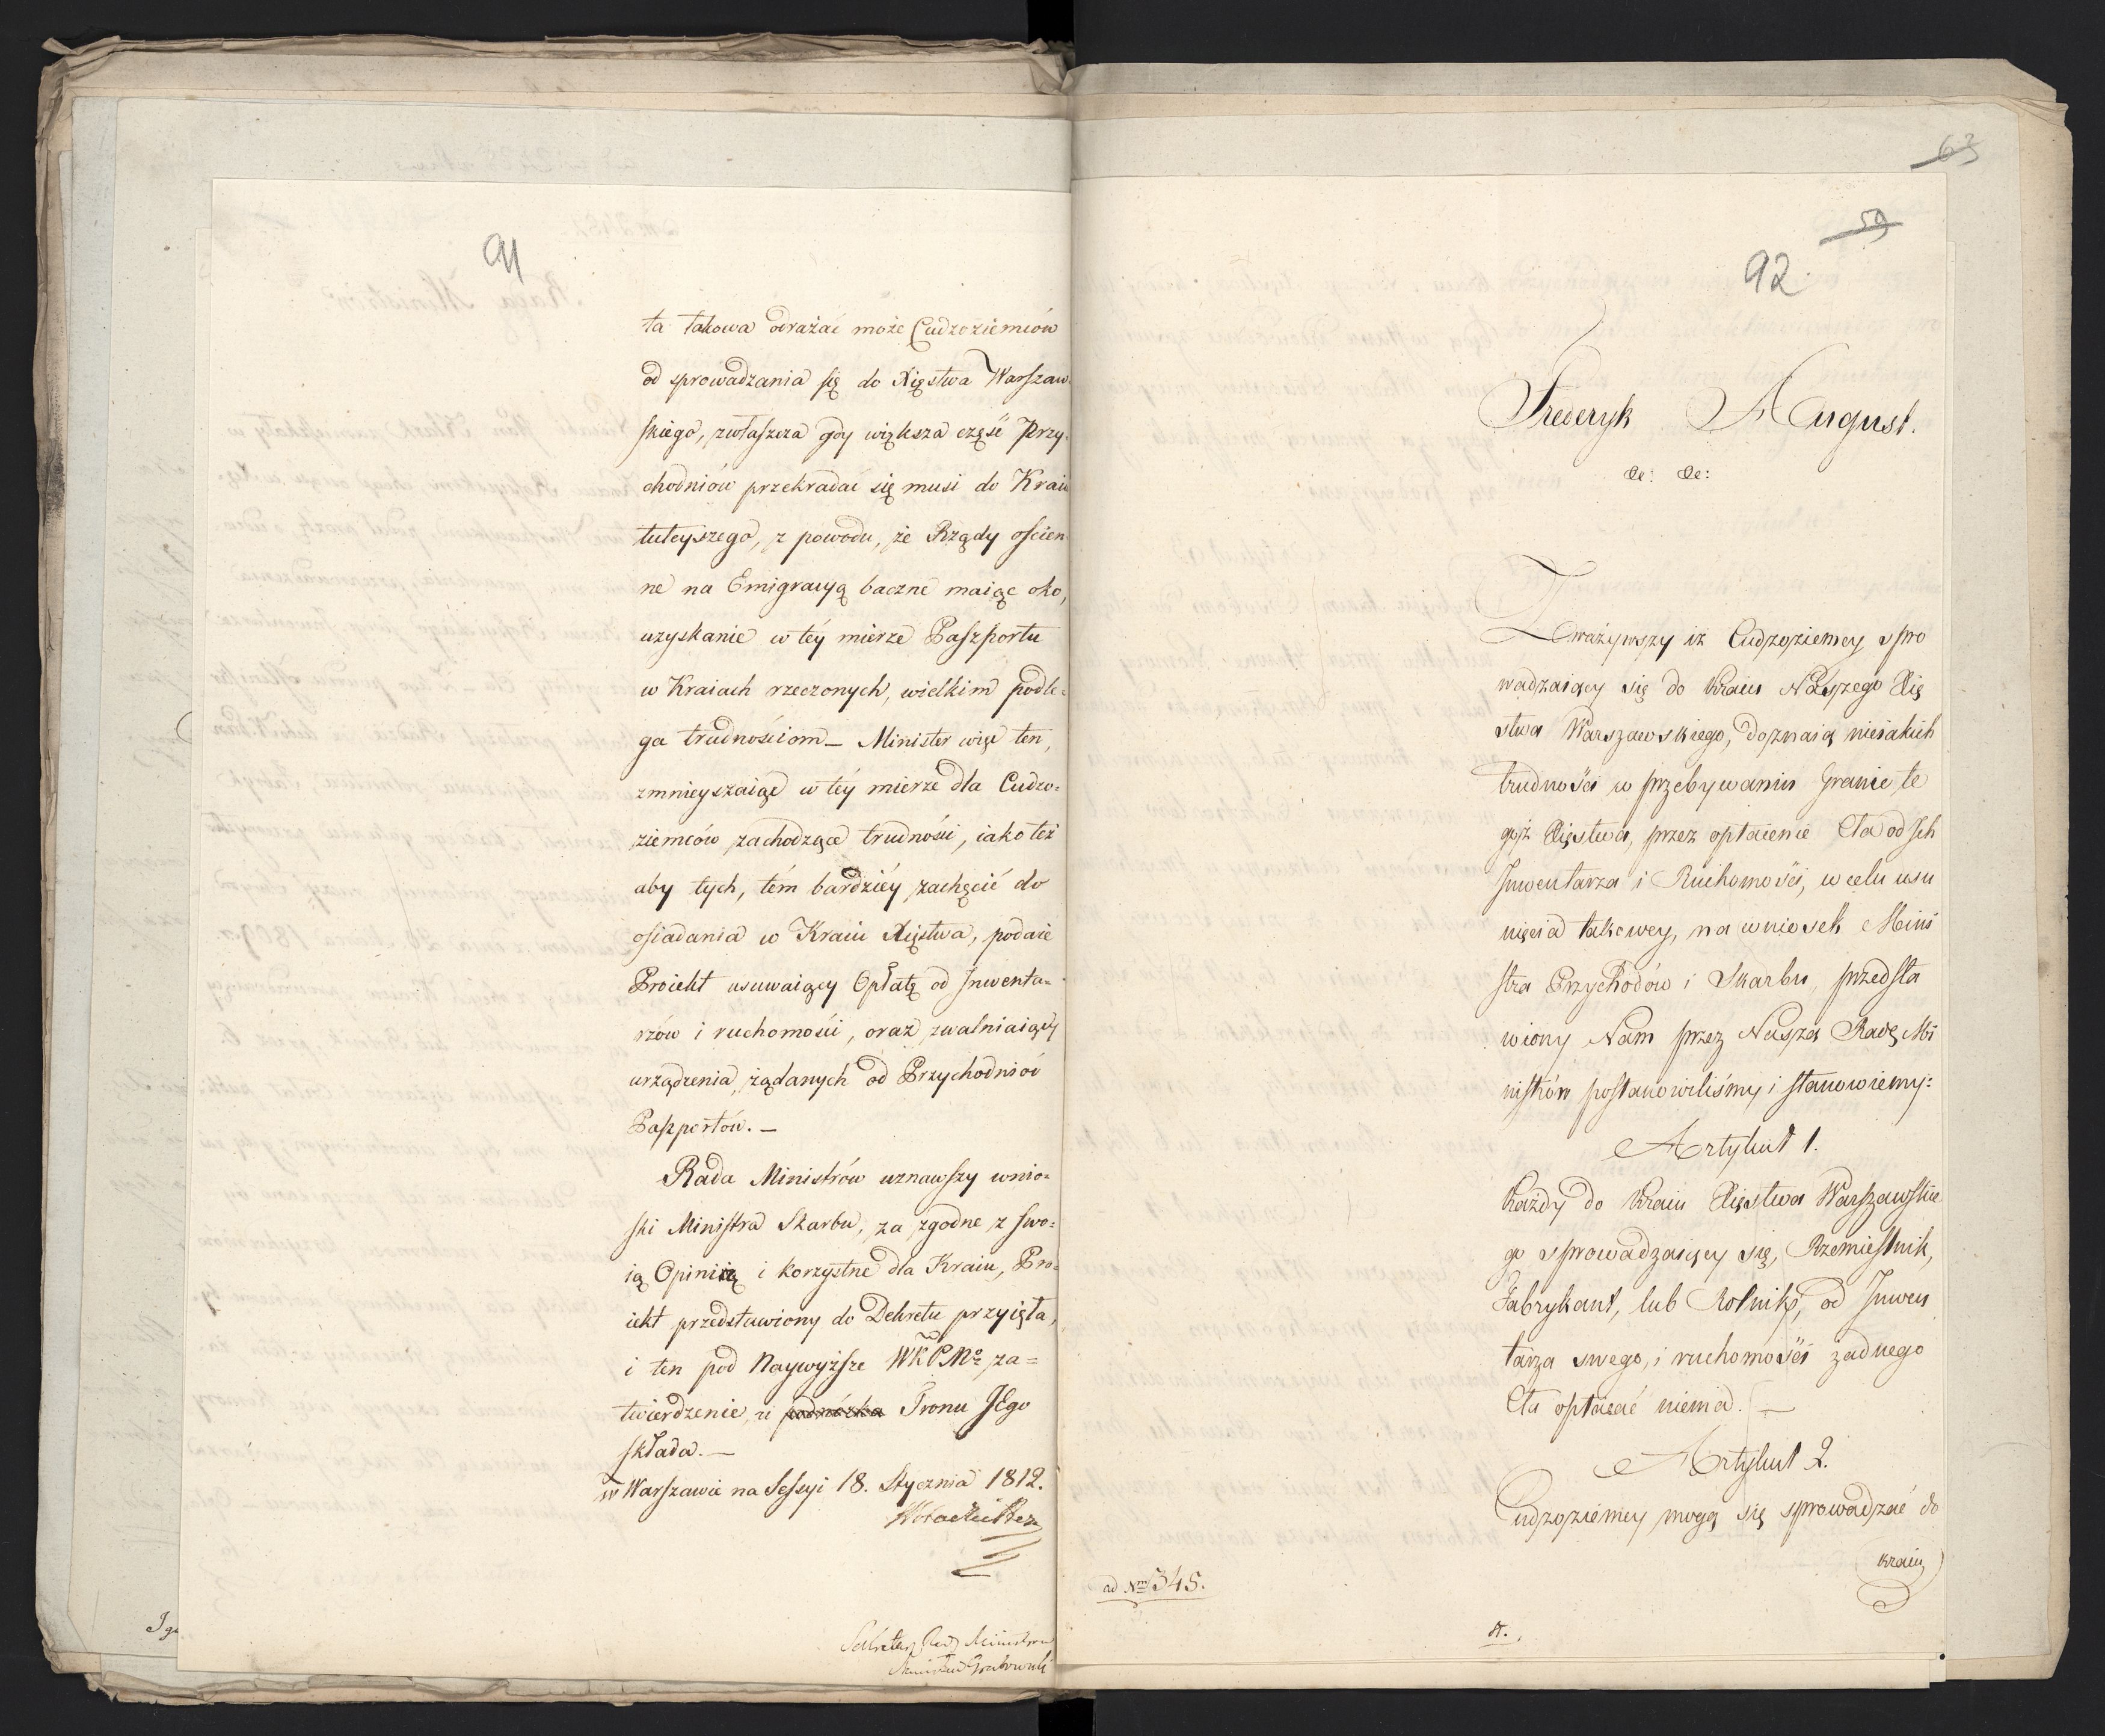 91
ta takowa odrażać może Cudzoziemców
od sprowadzania się do Xięstwa Warszaw-
skiego, zwłaszcza gdy większa część Przy-
chodniów przekradać się musi do Kraiu
tuteyszego, z powodu, że Rządy ościen
ne na Emigracyą baczne maiąc oko,
uzyskanie w téy mierze Paszportu
w Kraiach rzeczonych, wielkim podle-
ga trudnościom – Minister więc ten,
zmnieyszaiąc w téy mierze dla Cudzo-
ziemców zachodzące trudności, iako też
aby tych, tém bardziéy zachęcić do
osiadania w Kraiu Xięstwa, podaie
Proiekt usuwaiący Opłatę od Inwenta-
rzów i ruchomości, oraz zwalniaiący
urządzenia żądanych od Przychodniów
Paszportów. –
Rada Ministrów uznawszy wnio-
ski Ministra Skarbu, za zgodne z swo-
ią Opinią i korzystne dla Kraiu, Pro-
iekt przedstawiony do Dekretu przyięła,
i ten pod Naywyższe WKPMo za-
twierdzenie, u podnóżka Tronu JEgo
składa. –
w Warszawie na Sessyi 18. Stycznia 1812.
Sekretarz Rady Ministrów
Grabowski
63
59
92
Frederyk August.
&c: &c:
Zważywszy iż Cudzoziemcy spro
wadzaiący się do Kraiu Naszego Xię
stwa Warszawskiego, doznaią nieiakich
trudności w przebywaniu Granic te
goż Xięstwa, przez opłacenie Cła od Ich
Inwentarza i Ruchomości, w celu usu
nięcia takowey, na wniosek Mini
stra Przychodów i Skarbu, przedsta
wiony Nam przez Naszą Radę Mi
nistrów postanowiliśmy i stanowiemy:
Artykuł 1.
Każdy do Kraiu Xięstwa Warszawskie
go sprowadzaiący się, Rzemieślnik,
Fabrykant, lub Rolnik, od Inwen
tarza swego, i ruchomości żadnego
Cła opłacać niema. –
Artykuł 2.
Cudzoziemcy mogą się sprowadzać do
kraiu
ad Nrm 345.